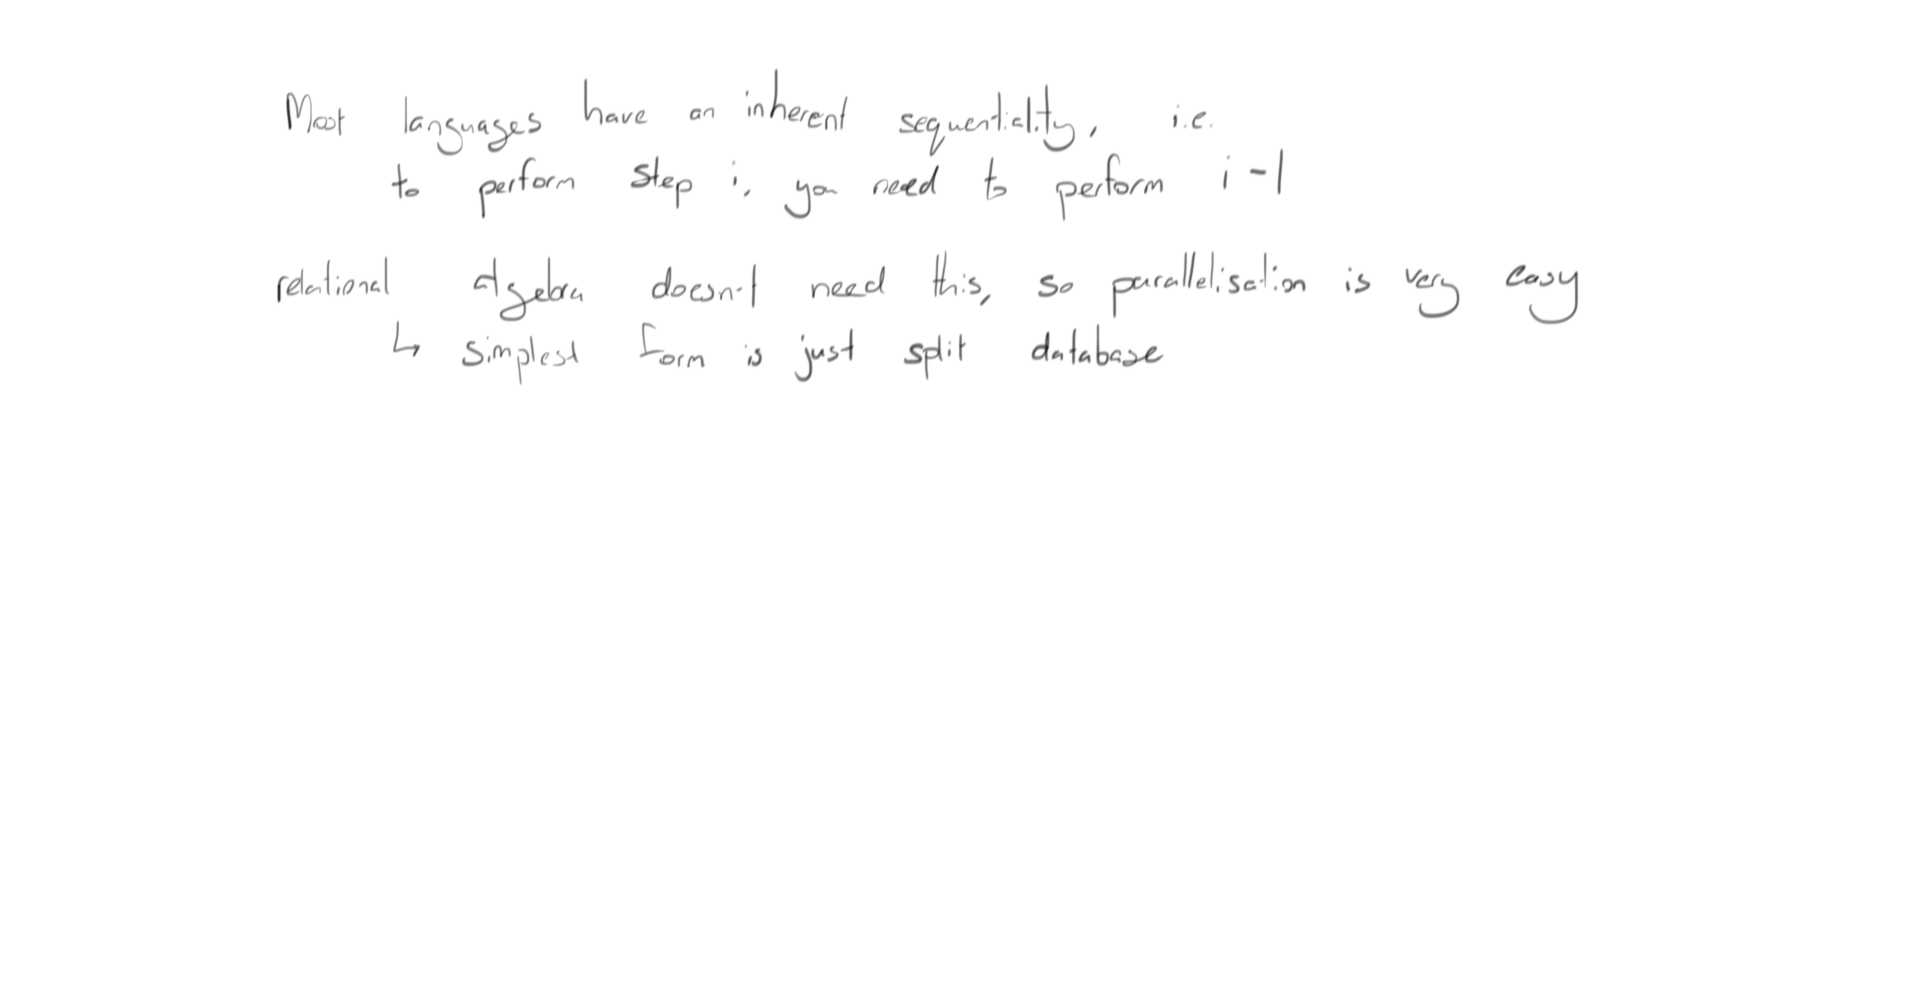 Most languages have an inherent sequentiality, i.e.
to perform step i, you need to perform i-1
relational algebra doesn't need this, so parallelisation is very easy
↳ simplest form is just split database